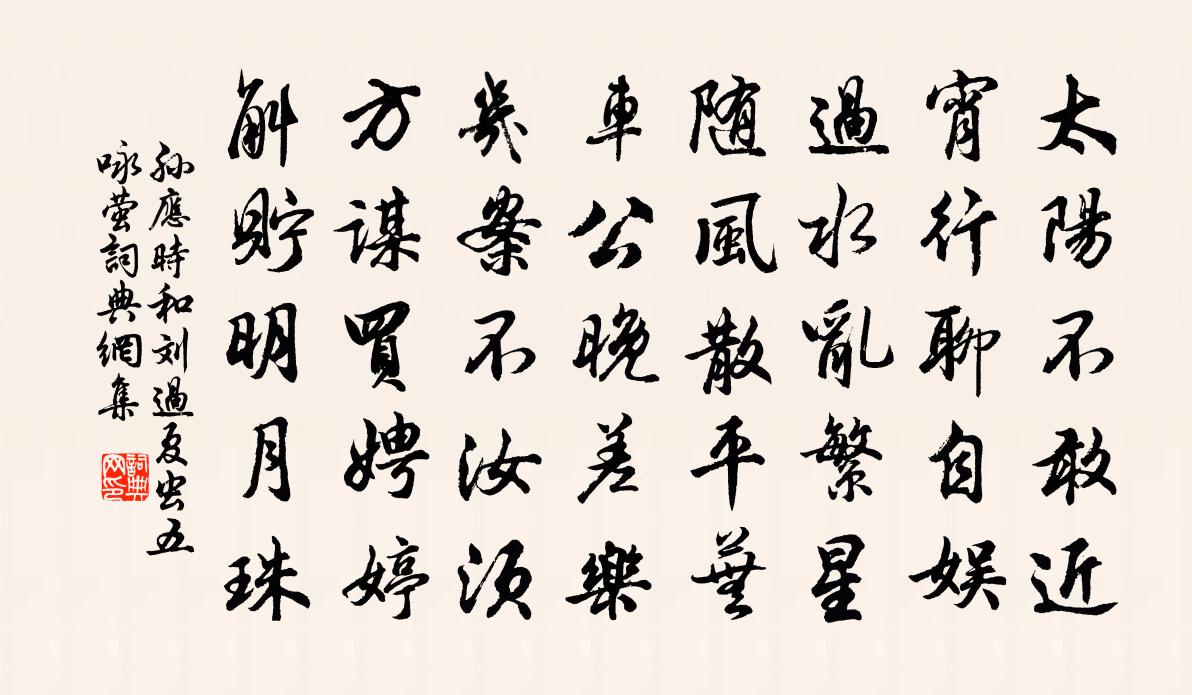 太陽不敢近
宵行聊自娱
過水亂繁星
随風散平蕪
車公晚差樂
幾案不汝須
方謀買娉婷
斛貯明月珠
孙應時和刘過夏虫五
咏萤詞典網集
詞典网印